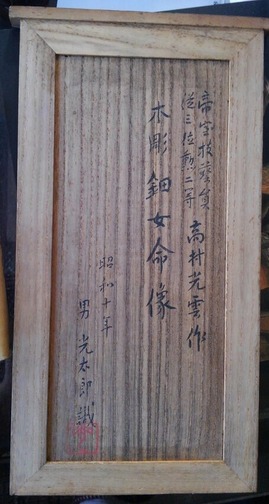 帝室技藝員
従三位勲二等
高村光雲作
木彫 鈿女命像
昭和十年
男 光太郎識